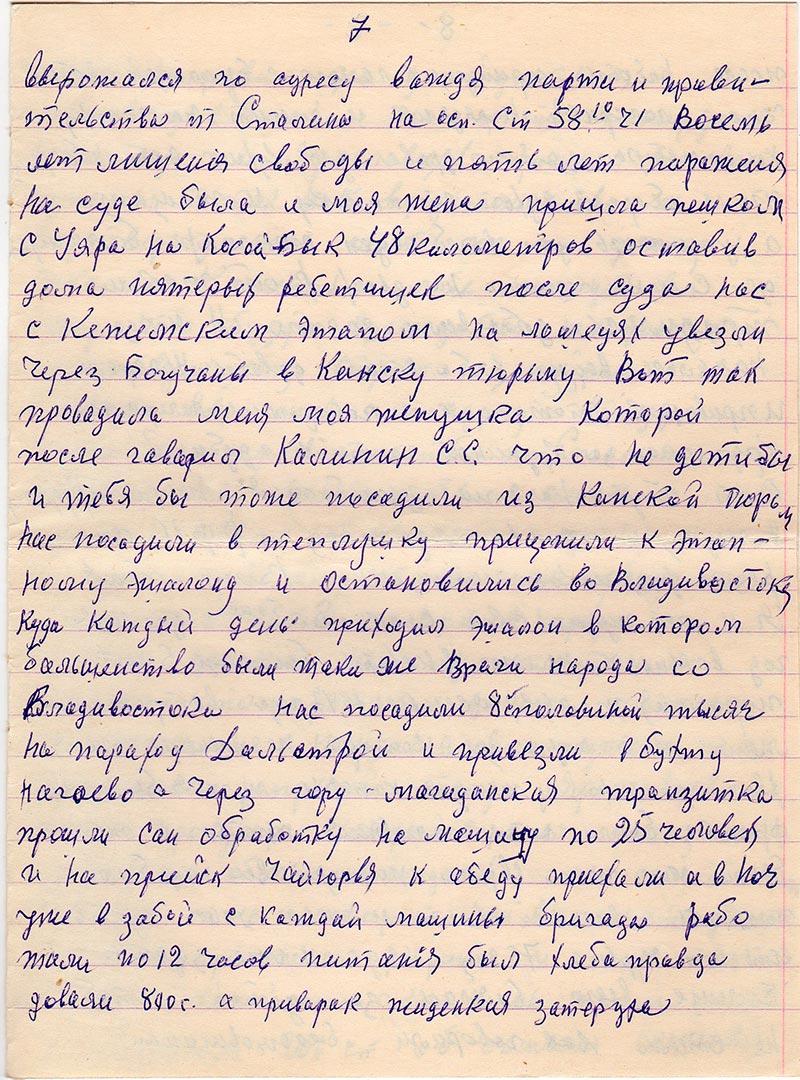 7
выражался по адресу вождя парти и прави-
тельства т Сталина на осн. Ст 58 10 Ч1 Восемь
лет лишения свободы и пять лет паражения
на суде была и моя жена пришла пешком
с Уяра на Косой Бык 48 километров оставив
дома пятерых ребетишек после суда нас
с Кежемским этапом на лошедях увезли
через Богучаны в Канску тюрьму Вот так
провадила меня моя женушка Которой
после гаварил Калинин С.С. что не дети бы
и тебя бы тоже посадили из Канской Тюрьм
нас посадили в теплушку прицепили к этап-
ному эшалону и остановились во Владивостоке
куда каждый день приходил эшалон в котором
большенство были таки же Враги народа со
Владивостока нас посадили 8 споловиной тысяч
на параход Дальстрой и привезли в бухту
нагаево а через гору - магаданская транзитка
прошли сан обработку на машину по 25 человек
и на прииск Чайюрвя к абеду приехали а в ноч
уже в забой с каждай машины бригада рабо
тали по 12 часов питания был хлеба правда
довали 800 г. а приварак жиденкия затеруха